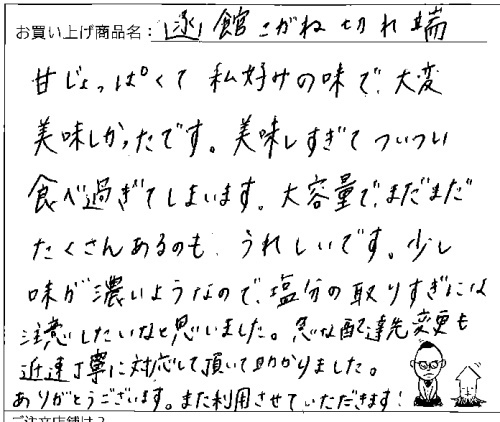 お買い上げ商品名：函館こがね切れ端
甘じょっぱくて私好みの味で、大変
美味しかったです。美味しすぎてついつい
食べ過ぎてしまいます。大容量で、まだまだ
たくさんあるのも、うれしいです。少し
味が濃いようなので、塩分の取りすぎには
注意したいなと思いました。急な配達先変更も
迅速丁寧に対応して頂いて助かりました。
ありがとうございます。また利用させていただきます！